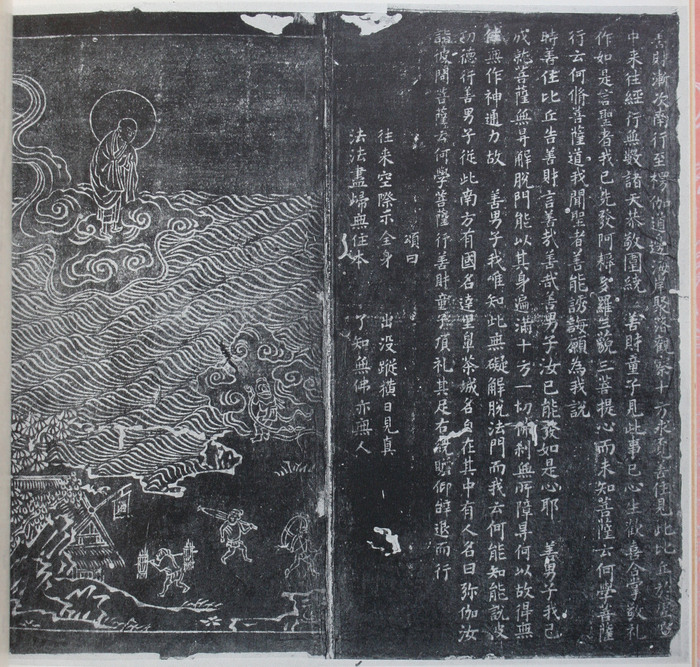 善財漸次南行至楞伽道邊海岸聚落觀察十方求覓善住見此比丘於虛空
中来往經行無數諸天恭敬圍繞 善財童子見此事已心生歡喜合掌敬礼
作如是言聖者我已先發阿耨多羅三藐三菩提心而未知菩薩云何學菩薩
行云何脩菩薩道我聞聖者善能誘誨願為我説
時善住比丘告善財言善㢤善㢤善男子汝已能發如是心耶 善男子我已
成就菩薩無㝵解脱門能以其身遍滿十方一切刹無所障㝵何以故得無
無作神通力故 善男子我唯知此無礙解脱法門而我云何能知能說彼
功德行善男子從此南方有國名達里鼻茶城名自在其中有人名曰弥伽汝
詣彼問菩薩云何學菩薩行善財童子頂礼其足右繞瞻仰辝退而行
頌曰
往来空際示全身 出没蹤橫日見真
法法盡歸無住本 了知無佛亦無人